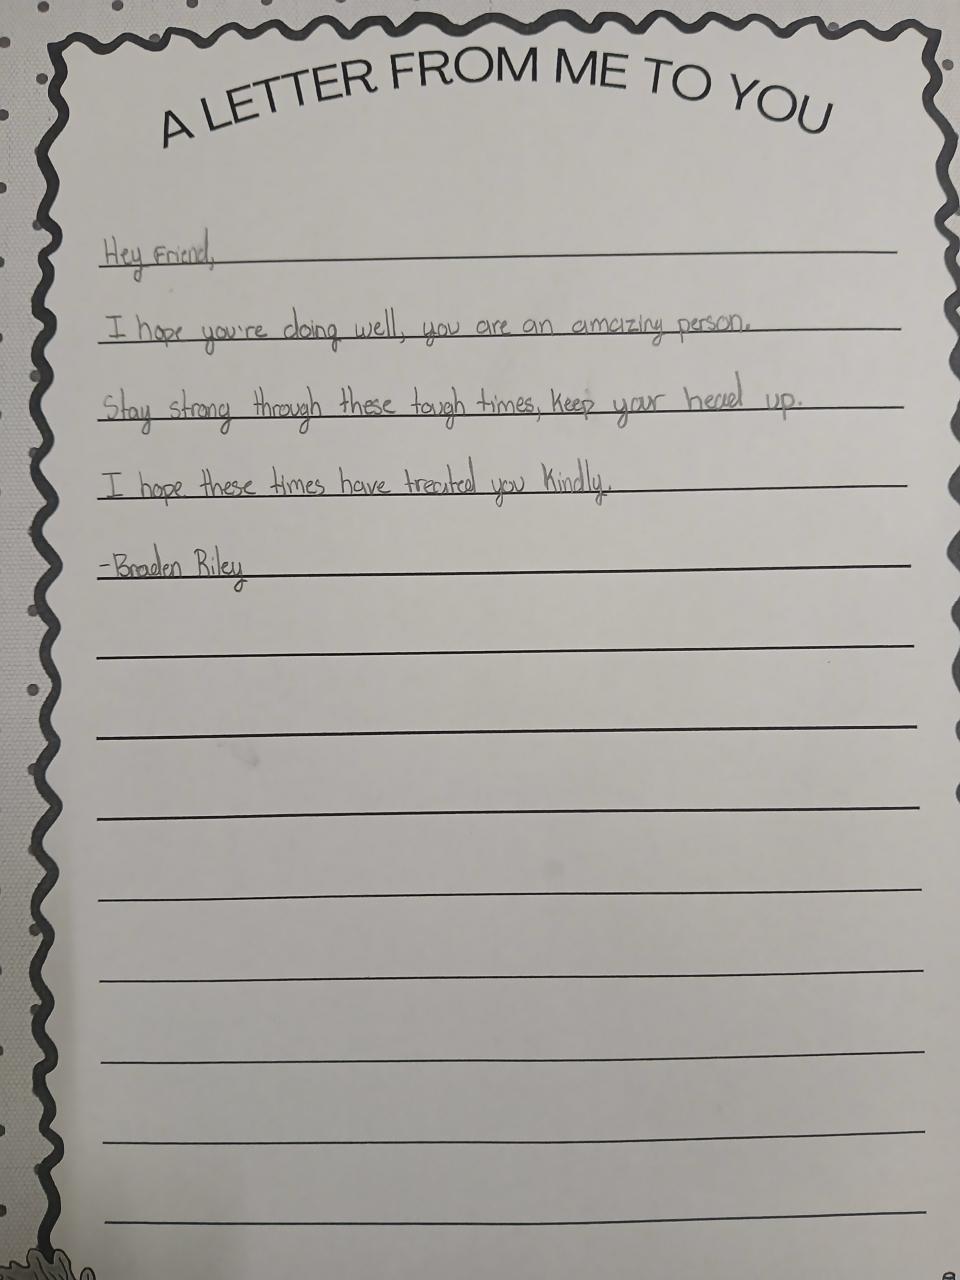 A LETTER FROM ME TO YOU
Hey Friend,
I hope you're doing well, you are an amazing person.
Stay strong through these tough times, keep your head up.
I hope these times have treated you kindly.
-Braden Riley